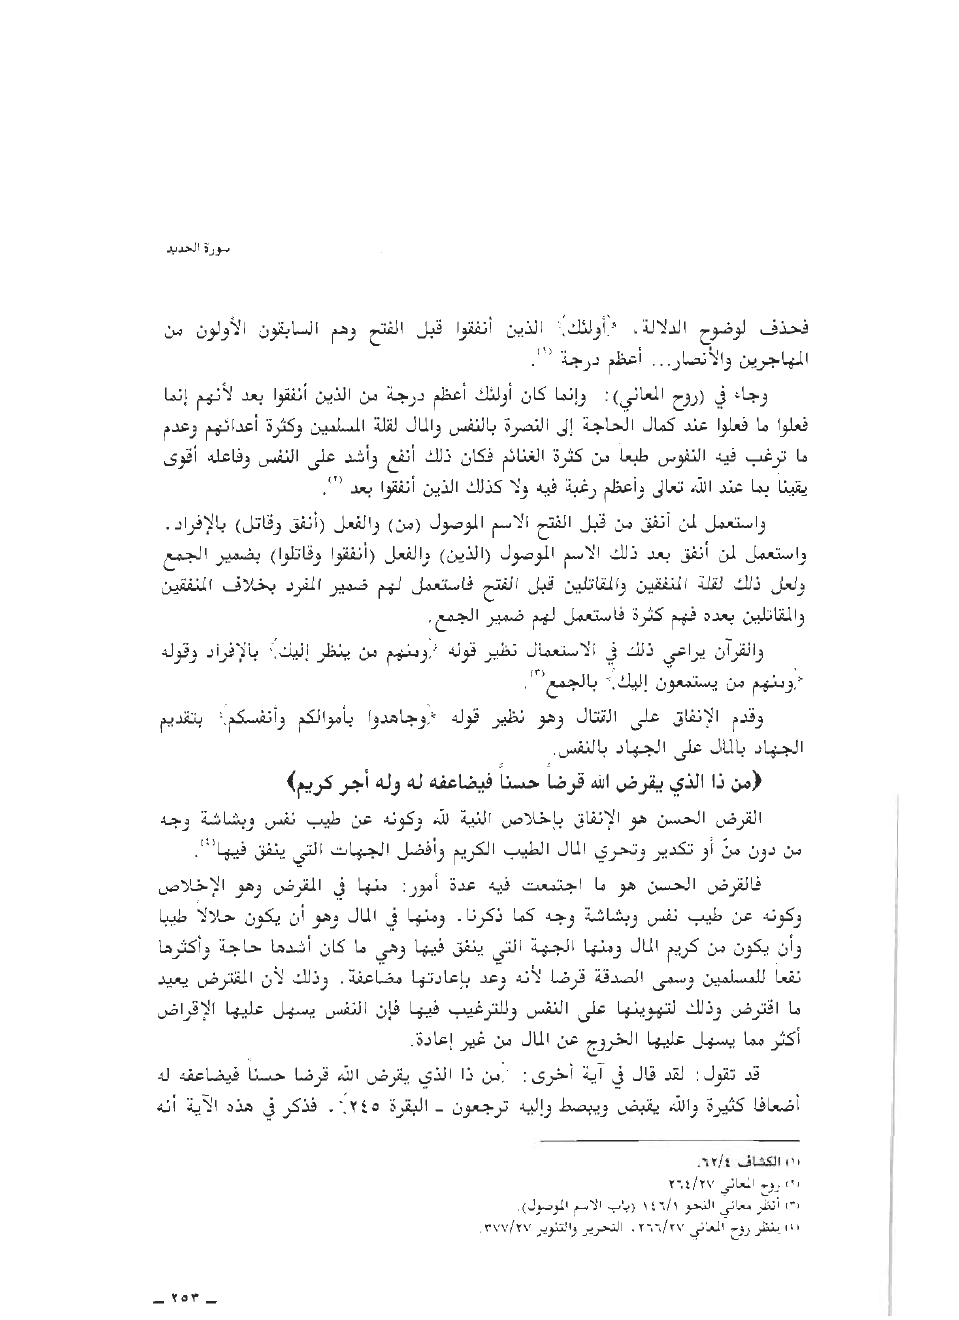 سورة الحديد
فحذف لوضوح الدلالة. ﴿أولئك﴾ الذين أنفقوا قبل الفتح وهم السابقون الأولون من
المهاجرين والأنصار... أعظم درجة (١).
وجاء في (روح المعاني): وإنما كان أولئك أعظم درجة من الذين أنفقوا بعد لأنهم إنما
فعلوا ما فعلوا عند كمال الحاجة إلى النصرة بالنفس والمال لقلة المسلمين وكثرة أعدائهم وعدم
ما ترغب فيه النفوس طبعاً من كثرة الغنائم فكان ذلك أنفع وأشد على النفس وفاعله أقوى
يقيناً بما عند الله تعالى وأعظم رغبة فيه ولا كذلك الذين أنفقوا بعد (٢).
واستعمل لمن أنفق من قبل الفتح الاسم الموصول (من) والفعل (أنفق وقاتل) بالإفراد.
واستعمل لمن أنفق بعد ذلك الاسم الموصول (الذين) والفعل (أنفقوا وقاتلوا) بضمير الجمع
ولعل ذلك لقلة المنفقين والمقاتلين قبل الفتح فاستعمل لهم ضمير المفرد بخلاف المنفقين
والمقاتلين بعده فهم كثرة فاستعمل لهم ضمير الجمع.
والقرآن يراعي ذلك في الاستعمال نظير قوله ﴿ومنهم من ينظر إليك﴾ بالإفراد وقوله
﴿ومنهم من يستمعون إليك﴾ بالجمع(٣).
وقدم الإنفاق على القتال وهو نظير قوله ﴿وجاهدوا بأموالكم وأنفسكم﴾ بتقديم
الجهاد بالمال على الجهاد بالنفس.
﴿من ذا الذي يقرض الله قرضاً حسناً فيضاعفه له وله أجر كريم﴾
القرض الحسن هو الإنفاق بإخلاص النية لله وكونه عن طيب نفس وبشاشة وجه
من دون منّ أو تكدير وتحري المال الطيب الكريم وأفضل الجهات التي ينفق فيها(٤).
فالقرض الحسن هو ما اجتمعت فيه عدة أمور: منها في المقرض وهو الإخلاص
وكونه عن طيب نفس وبشاشة وجه كما ذكرنا. ومنها في المال وهو أن يكون حلالاً طيبا
وأن يكون من كريم المال ومنها الجهة التي ينفق فيها وهي ما كان أشدها حاجة وأكثرها
نفعاً للمسلمين وسمى الصدقة قرضا لأنه وعد بإعادتها مضاعفة. وذلك لأن المقترض يعيد
ما اقترض وذلك لتهوينها على النفس وللترغيب فيها فإن النفس يسهل عليها الإقراض
أكثر مما يسهل عليها الخروج عن المال من غير إعادة.
قد تقول: لقد قال في آية أخرى: ﴿من ذا الذي يقرض الله قرضا حسناً فيضاعفه له
أضعافا كثيرة والله يقبض ويبصط وإليه ترجعون ــ البقرة ٢٤٥﴾. فذكر في هذه الآية أنه
(١) الكشاف ٦٢/٤.
(٢) روح المعاني ٢٦٤/٢٧
(٣) أنظر معاني النحو ١٤٦/١ (باب الاسم الموصول).
(٤) ينظر روح المعاني ٢٦٦/٢٧، التحرير والتنوير ٣٧٧/٢٧.
ــ ٢٥٣ ــ